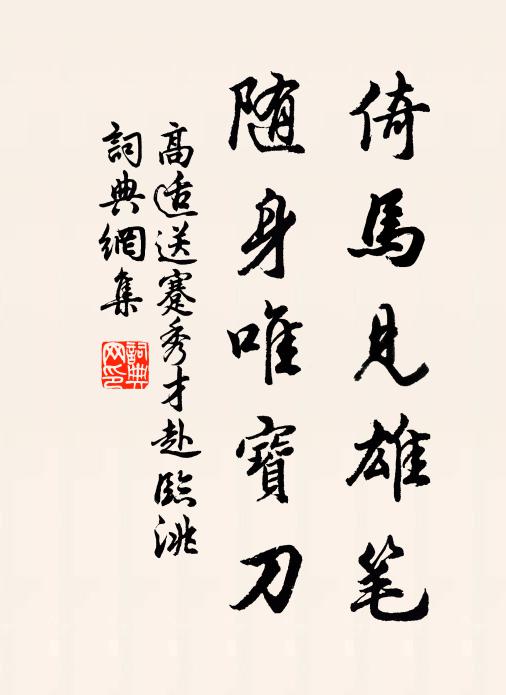 倚馬見雄笔
随身唯寶刀
高适送蹇秀才赴臨洮
詞典網集
詞典网印